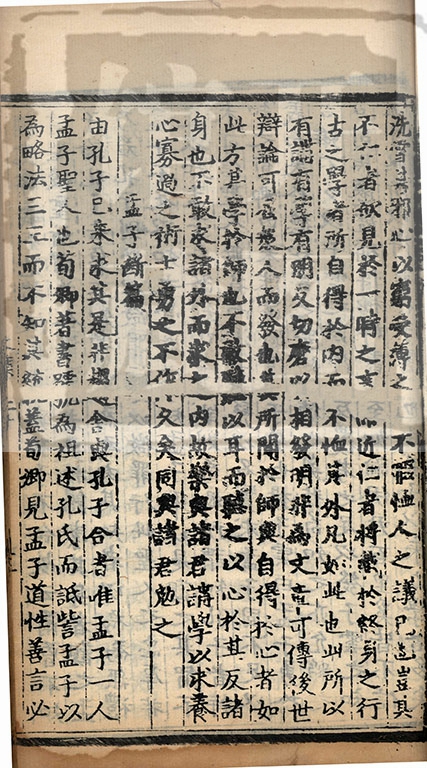 洗雪其邪心以窮受薄之不暇恤人之議已豈其
不仁者欲見於一時之言近仁者將徵於終身之行
古之學者所自得於內而不恤其外凡如此也此所以
有講有學有朋友切磨以相發明非為文章可傳後世
辯論可屈眾人而發也其所聞於師與自得於心者如
此方其學於師也不敢聽以耳而聽之以心於其反諸
身也不敢求諸外而求之內故樂與諸君講學以求養
心寡過之術士勇之不作久矣同與諸君勉之
孟子斷篇
由孔子已來求其是非趨舍與孔子合者唯孟子一人
孟子聖人也荀卿著書號為祖述孔氏而詆訾孟子以
為略法三王而不知其統蓋荀卿見孟子道性善言必